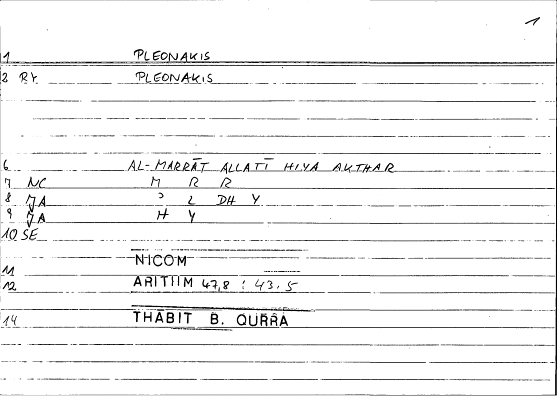 1
1 PLEONAKIS
2 RY. PLEONAKIS
6 AL-MARRĀT ALLATĪ HIYA AKTHAR
7 NC M R R
8 JA ʾ L DH Y
9 JA H Y
10 SE
11 NICOM
12 ARITIIM 47,8 : 43.5
14 THĀBIT B. QURRA